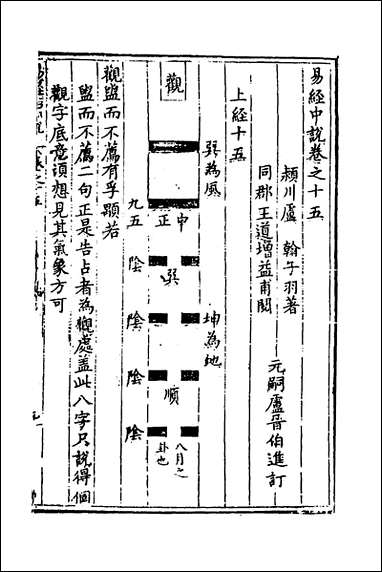 易經中說卷之十五
潁川盧 翰子羽著
同郡王道增益甫閱
元嗣盧晉伯進訂
上經十五
巽為風
坤為地
觀
中
正
巽
順
八月之
卦也
九五
陰
陰
陰
陰
觀盥而不薦有孚顒若
盥而不薦二句正是告占者為觀處蓋此八字只說得個
觀字底意須想見其氣象方可